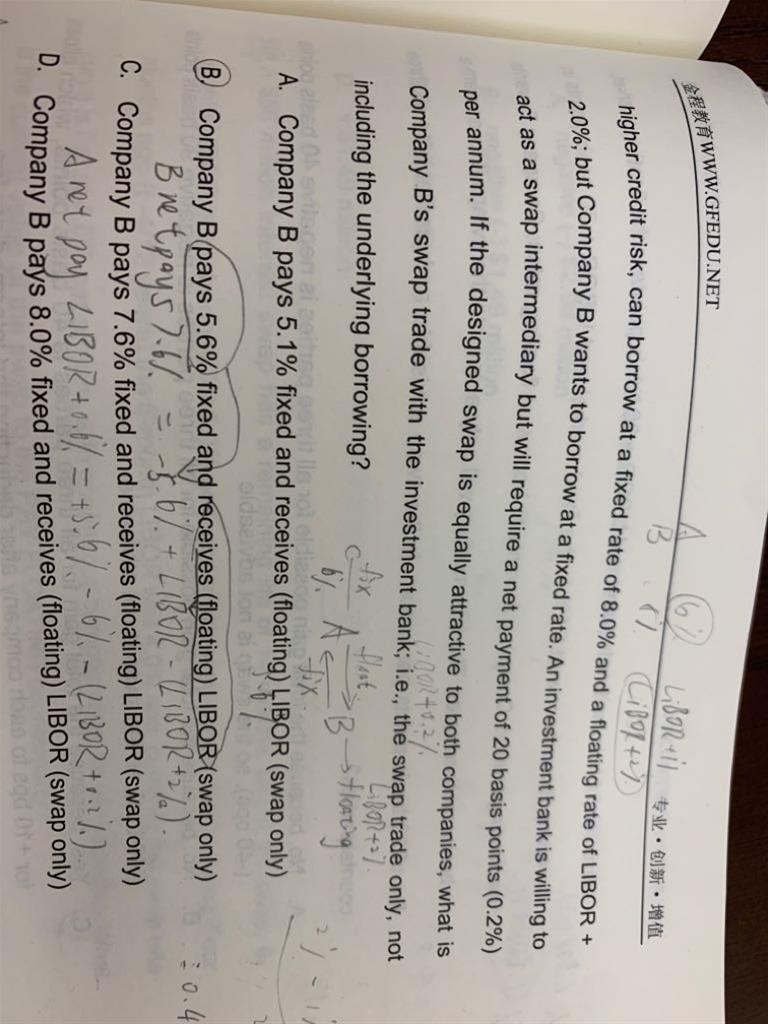 金程教育WWW.GFEDU.NET
专业·创新·增值
A 6% LIBOR+1%
B 8% LIBOR+2%
higher credit risk, can borrow at a fixed rate of 8.0% and a floating rate of LIBOR +
2.0%; but Company B wants to borrow at a fixed rate. An investment bank is willing to
act as a swap intermediary but will require a net payment of 20 basis points (0.2%)
per annum. If the designed swap is equally attractive to both companies, what is
Company B's swap trade with the investment bank; i.e., the swap trade only, not
including the underlying borrowing?
LIBOR+0.2%
fix float LIBOR+2%
6% A B floating
fix
A. Company B pays 5.1% fixed and receives (floating) LIBOR (swap only)
B. Company B pays 5.6% fixed and receives (floating) LIBOR (swap only)
B net pays 7.6% = -5.6% + LIBOR - (LIBOR+2%).
C. Company B pays 7.6% fixed and receives (floating) LIBOR (swap only)
A net pay LIBOR+0.6% = +5.6% - 6% - (LIBOR+0.2%)
D. Company B pays 8.0% fixed and receives (floating) LIBOR (swap only)